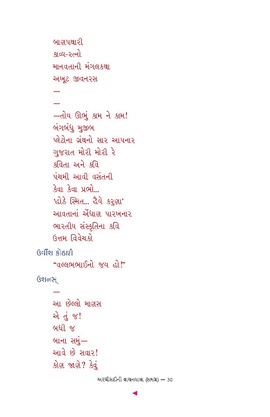 બાણપથારી
કાવ્ય-રત્નો
માનવતાની મંગલકથા
અખૂટ જીવનરસ
—
—
—તોય ઊભું કામ ને કામ!
બંગબંધુ મુજીબ
પ્લેટોના ગ્રંથનો સાર આપનાર
ગુજરાત મોરી મોરી રે
કવિતા અને કવિ
પંથમી આવી વસંતની
કેવા કેવા પ્રભો...
'હોઠે સ્મિત... હૈયે કરુણા'
આવતાનાં એંધાણ પારખનાર
ભારતીય સંસ્કૃતિના કવિ
ઉત્તમ વિવેચકો
ઉર્વીશ કોઠારી
"વલ્લભભાઈનો જય હો!"
ઉશનસ્
—
આ છેલ્લો માણસ
એ તું જ!
બધી જ
બાના સમું—
આવે છે સવાર!
કોણ જાણે? કેવું
અરધી સદીની વાચનયાત્રા (સમગ્ર) — 50